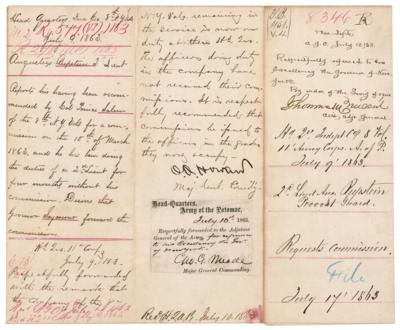 July 9th 1863.
Augustus Rupstein 2 Lieut
Reports his having been recom-
mended by Col Prince Salm
of the 8th N.Y. Vols for a com-
mission on the 10th of March
1863, and he has been doing
the duties of a 2d Lieut for
four months without his
commission. Desires that
Governor Seymour forward the
commission.
Hd Qrs. 11th Corps
July 9, 1863.
Respectfully forwarded
with the remark that
the Company of the
N.Y. Vols. remaining in
the service is now on
duty at these Hd. Qrs.
the officers doing duty
in the company have
not received their com-
missions. It is respect-
fully recommended, that
commissions be issued to
the officers, in the grade,
they now occupy.
O.O. Howard
Maj. Genl. Comdg.
Head-Quarters,
Army of the Potomac,
July 10th 1863.
Respectfully forwarded to the Adjutant
General of the Army, for reference
to his Excellency the Gov.
of New York.
Geo. G. Meade
Major General Commanding.
July 10. 1863
8346 R
War Dept
A.G.O. July 1863
Respectfully referred to His
Excellency the Governor of New
York.
By order of the Secy of War
Thomas M. Vincent
Asst Adjt General
Hd Qr Indept Co 8 N.Y.
11th Army Corps A. of P.
July 9th 1863.
2d Lieut Aug. Rupstein
Provost Guard.
Requests commission.
File
July 17th 1863